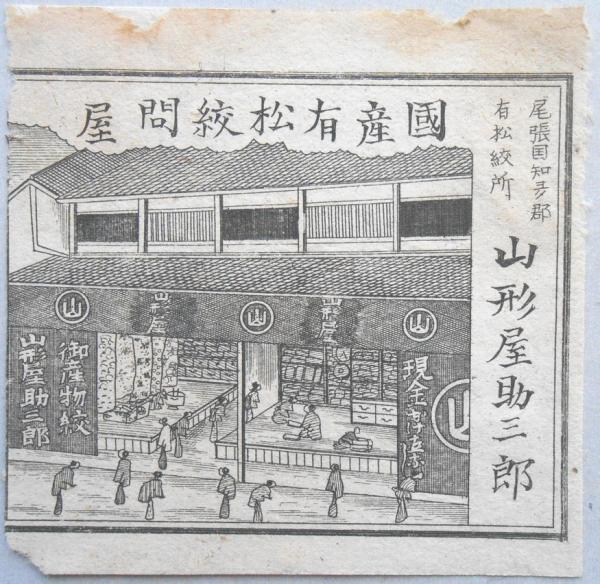 國産有松絞問屋
尾張国知多郡
有松絞所
山形屋助三郎
山
山
山
山形屋
山形屋
山
御産物絞
山形屋助三郎
現金